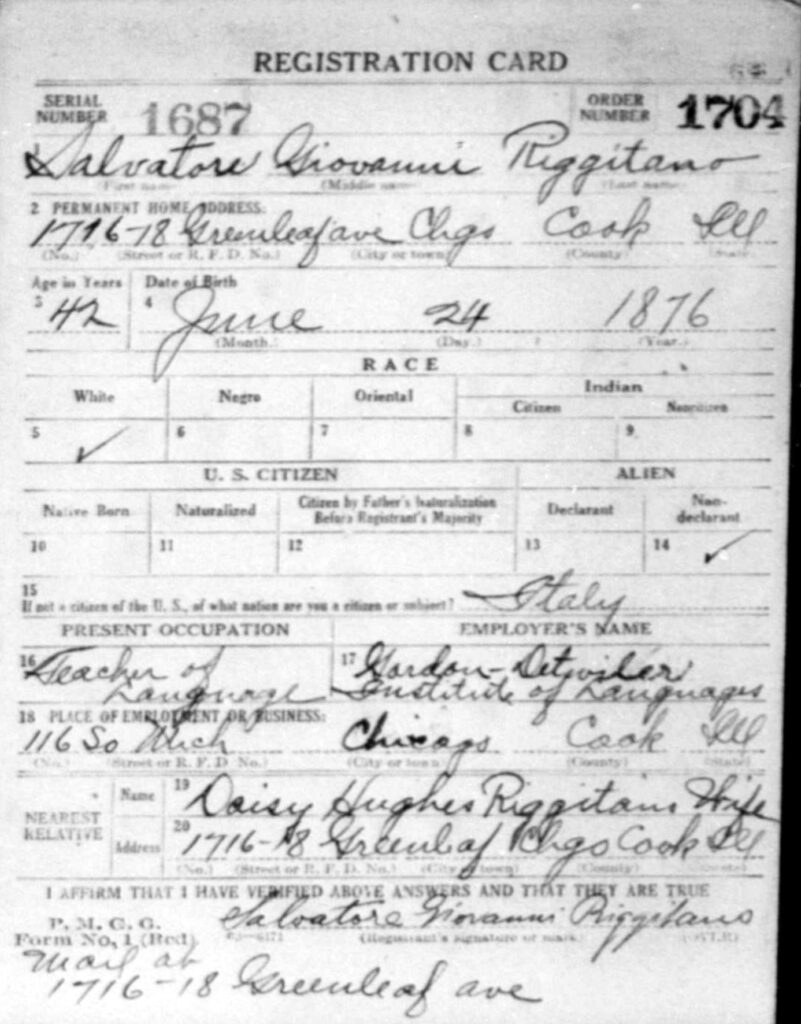 REGISTRATION CARD
SERIAL NUMBER 1687 ORDER NUMBER 1704
1 Salvatore Giovanni Riggitano
(First name) (Middle name) (Last name)
2 PERMANENT HOME ADDRESS:
1716-18 Greenleaf ave Chgo Cook Ill
(No.) (Street or R. F. D. No.) (City or town) (County) (State)
Age in Years Date of Birth
3 42 4 June 24 1876
(Month.) (Day.) (Year.)
RACE
White Negro Oriental Indian
Citizen Noncitizen
5 ✓ 6 7 8 9
U. S. CITIZEN ALIEN
Native Born Naturalized Citizen by Father's Naturalization Before Registrant's Majority Declarant Non-declarant
10 11 12 13 14 ✓
15
If not a citizen of the U. S., of what nation are you a citizen or subject? Italy
PRESENT OCCUPATION EMPLOYER'S NAME
16 Teacher of Language 17 Gordon-Detwiler Institute of Languages
18 PLACE OF EMPLOYMENT OR BUSINESS:
116 So Mich Chicago Cook Ill
(No.) (Street or R. F. D. No.) (City or town) (County) (State)
NEAREST RELATIVE
Name 19 Daisy Hughes Riggitano Wife
Address 20 1716-18 Greenleaf Chgo Cook Ill
(No.) (Street or R. F. D. No.) (City or town) (County) (State)
I AFFIRM THAT I HAVE VERIFIED ABOVE ANSWERS AND THAT THEY ARE TRUE
P. M. G. O.
Form No. 1 (Red) Salvatore Giovanni Riggitano
(Registrant's signature or mark) (OVER)
Mail at
1716-18 Greenleaf ave